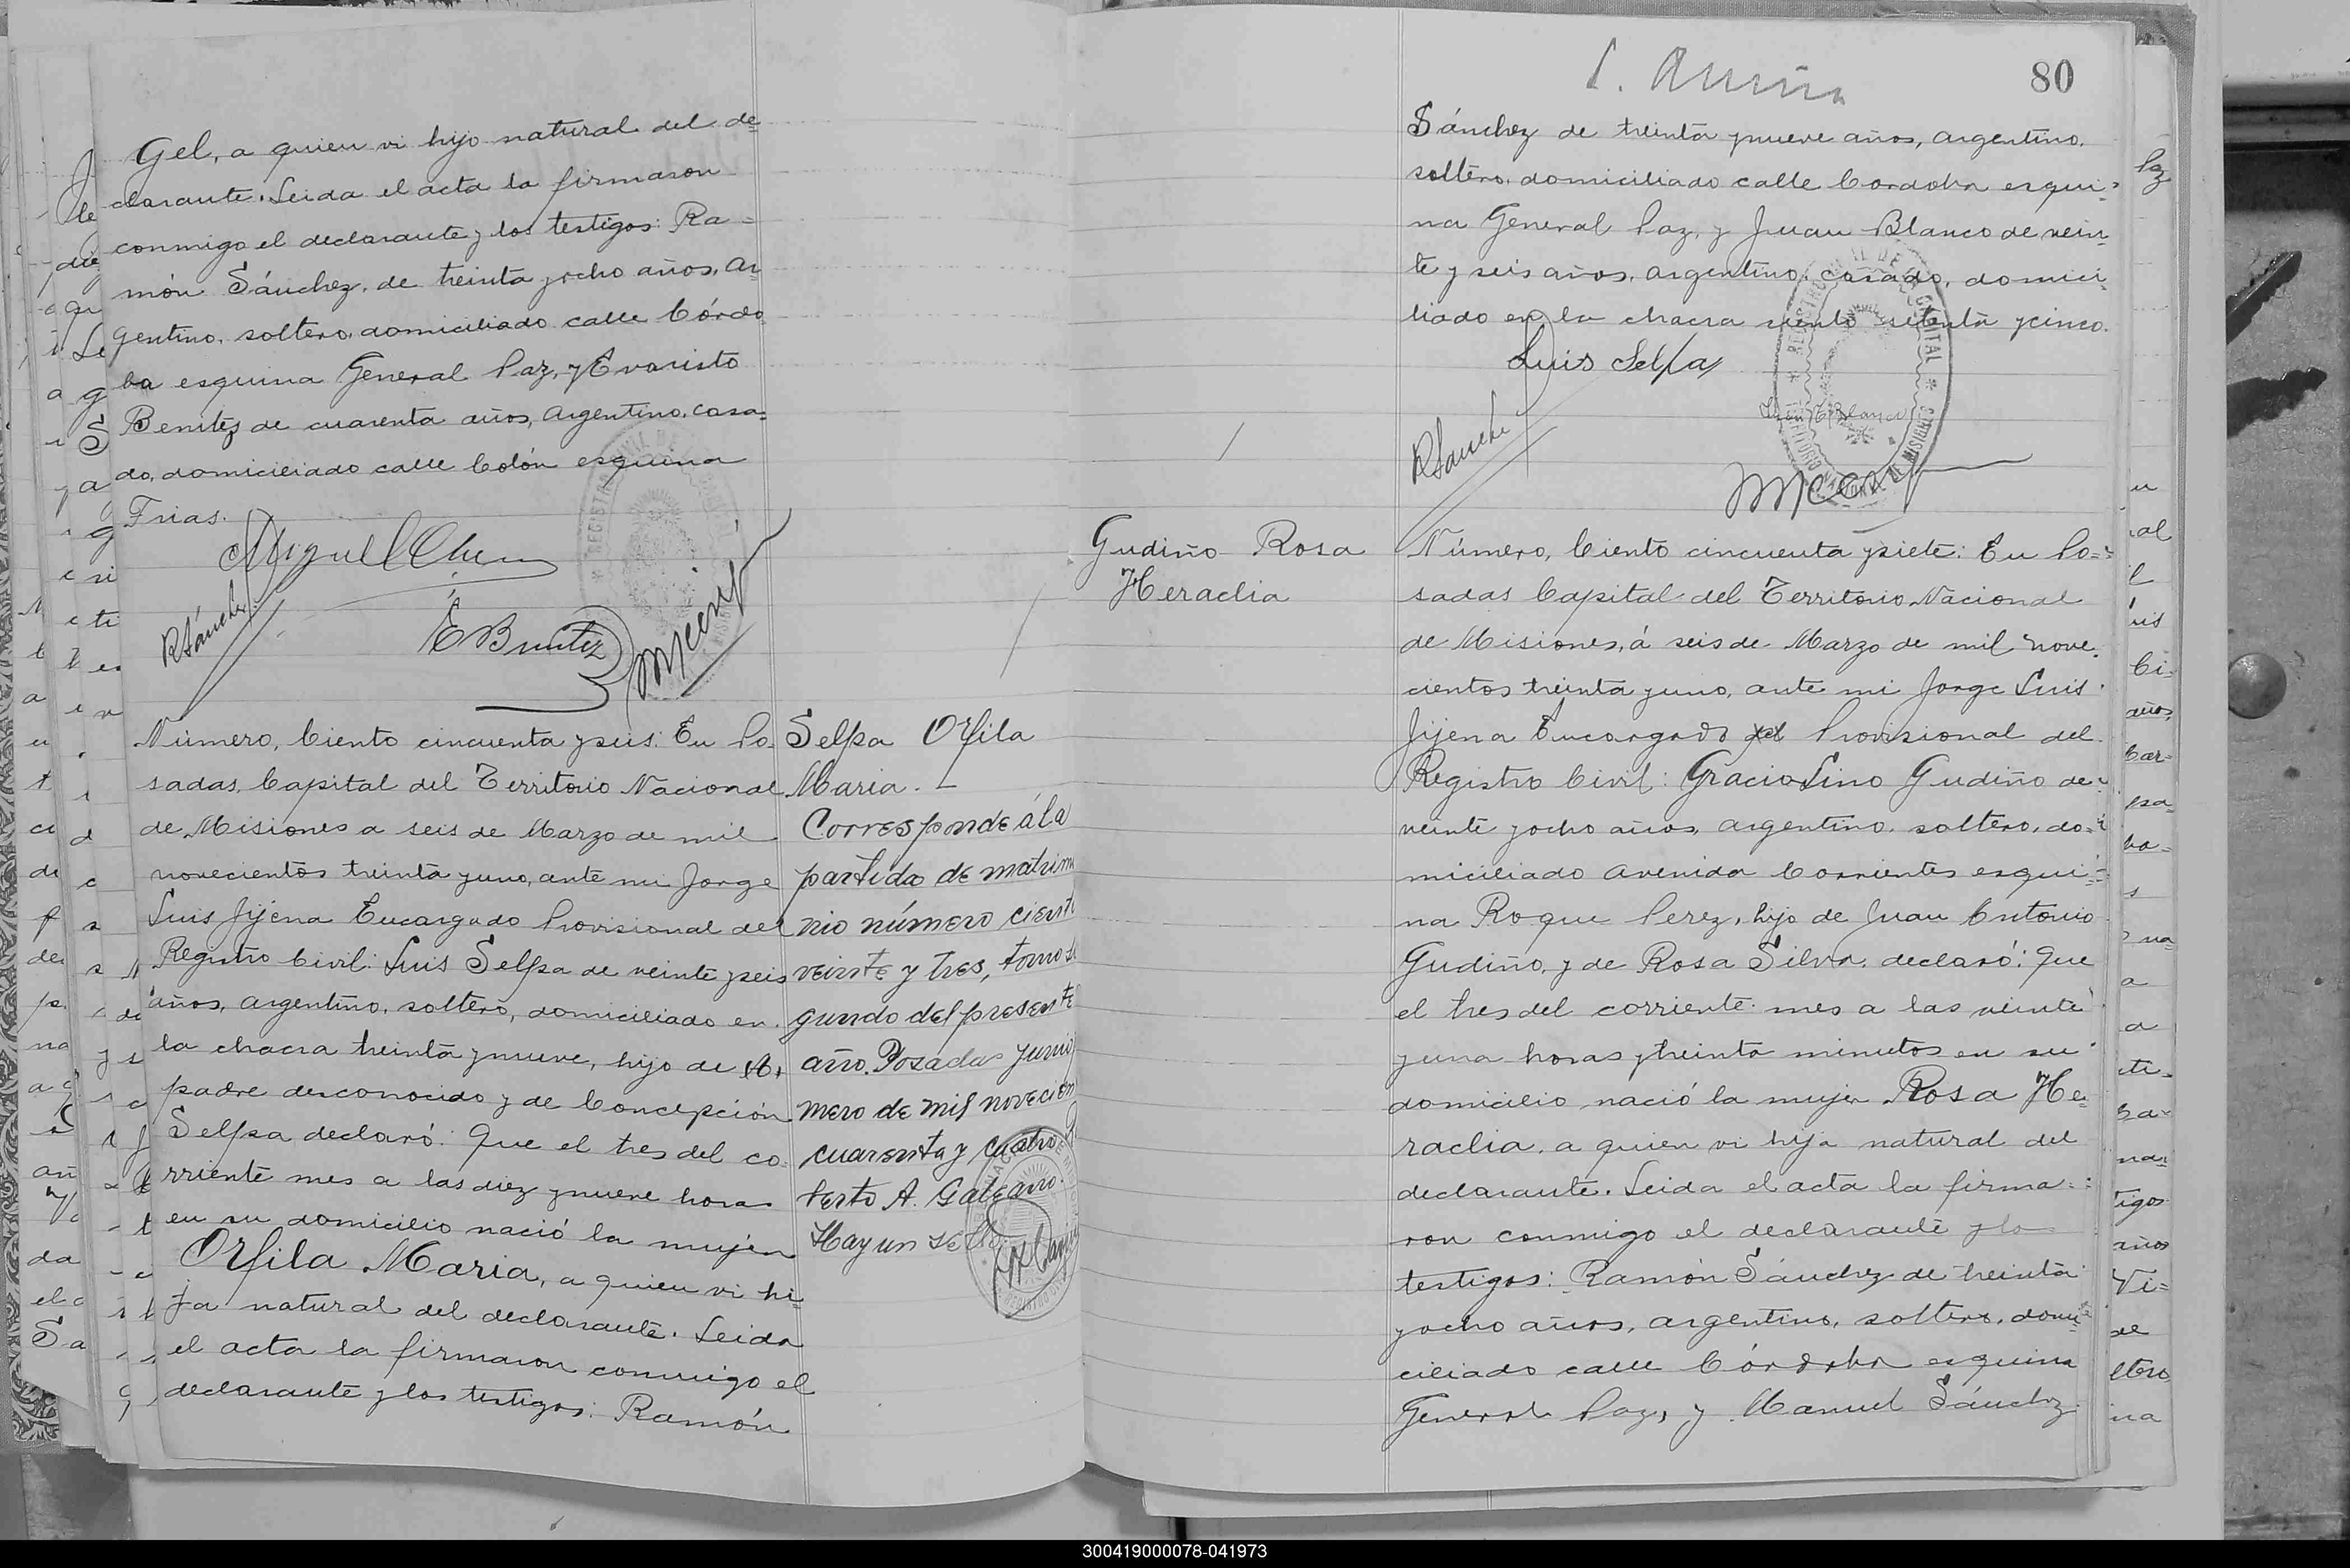 Gel, a quien vi hijo natural del de=
clarante. Leida el acta la firmaron
conmigo el declarante y los testigos: Ra=
món Sánchez, de treinta y ocho años, ar
gentino, soltero, domiciliado calle Córdo
ba esquina General Paz, y Evaristo
Benitez de cuarenta años, argentino, casa=
do, domiciliado calle Colón esquina
Frias.
Miguel
RSánchez
E Benitez
Número, Ciento cincuenta y seis: En Po
sadas, Capital del Territorio Nacional
de Misiones a seis de Marzo de mil
novecientos treinta y uno, ante mi Jorge
Luis Jijena Encargado Provisional del
Registro Civil: Luis Selpa de veinte y seis
años, argentino, soltero, domiciliado en
la chacra treinta y nueve, hijo de
padre desconocido y de Concepción
Selpa declaró: Que el tres del co
rriente mes a las diez y nueve horas
en su domicilio nació la mujer
Orfila Maria, a quien vi hi=
ja natural del declarante. Leida
el acta la firmaron conmigo el
declarante y los testigos: Ramón
Selpa Orfila
Maria.
Corresponde á la
partida de matrimo
nio número ciento
veinte y tres, tomo se
gundo del presente
año. Posadas Junio
mero de mil novecien
cuarenta y cuatro
berto A. Galeano.
Hay un sello
80
Sánchez de treinta y nueve años, argentino,
soltero, domiciliado calle Cordoba esqui=
na General Paz, y Juan Blanco de vein
te y seis años, argentino, casado, domici
liado en la chacra ciento setenta y cinco.
Luis Selpa
Juan Blanco
RSánche
Gudiño Rosa
Heraclia
Número, Ciento cincuenta y siete: En Po=
sadas Capital del Territorio Nacional
de Misiones, á seis de Marzo de mil nove
cientos treinta y uno, ante mi Jorge Luis
Jijena Encargado del Provisional del
Registro Civil: Gracio Lino Gudiño de
veinte y ocho años, argentino, soltero, do=
miciliado avenida Corrientes esqui=
na Roque Perez, hijo de Juan Antonio
Gudiño, y de Rosa Silva, declaró: Que
el tres del corriente mes a las veinte
y una horas y treinta minutos en su
domicilio nació la mujer Rosa He
raclia, a quien vi hija natural del
declarante. Leida el acta la firma=
ron conmigo el declarante y lo
testigos: Ramón Sánchez de treinta
y ocho años, argentino, soltero, domi
ciliado calle Córdoba esquina
General Paz, y Manuel Sánchez
300419000078-041973